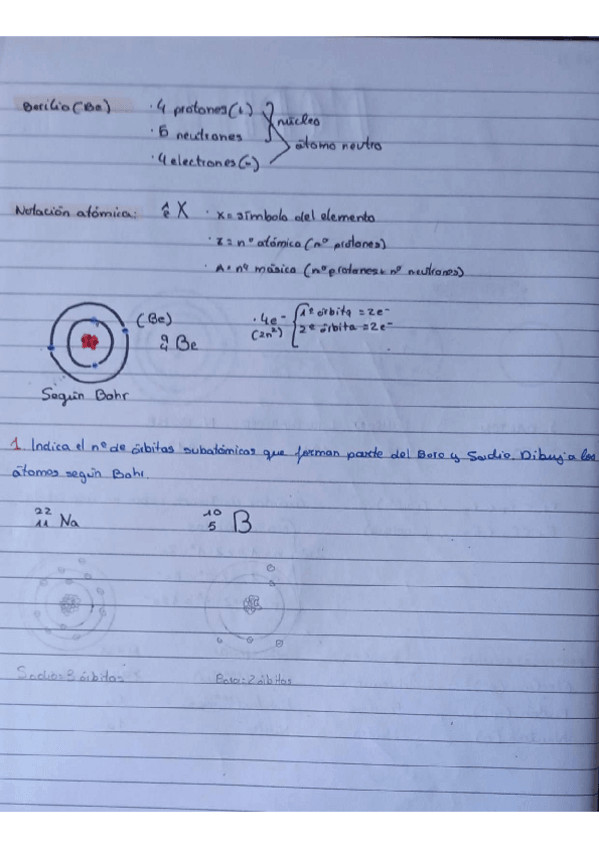 Berilio (Be) · 4 protones (+)
· 5 neutrones
núcleo
átomo neutro
· 4 electrones (-)
Notación atómica: A Z X · X = símbolo del elemento
· Z = nº atómica (nº protones)
· A = nº másica (nº protones + nº neutrones)
(Be)
9 Be
· 4e⁻ 1ª órbita = 2e⁻
(2n²) 2ª órbita = 2e⁻
Según Bohr
1. Indica el nº de órbitas subatómicas que forman parte del Boro y Sodio. Dibuja los
átomos según Bohr.
22 11 Na 10 5 B
Sodio = 3 órbitas Boro = 2 órbitas